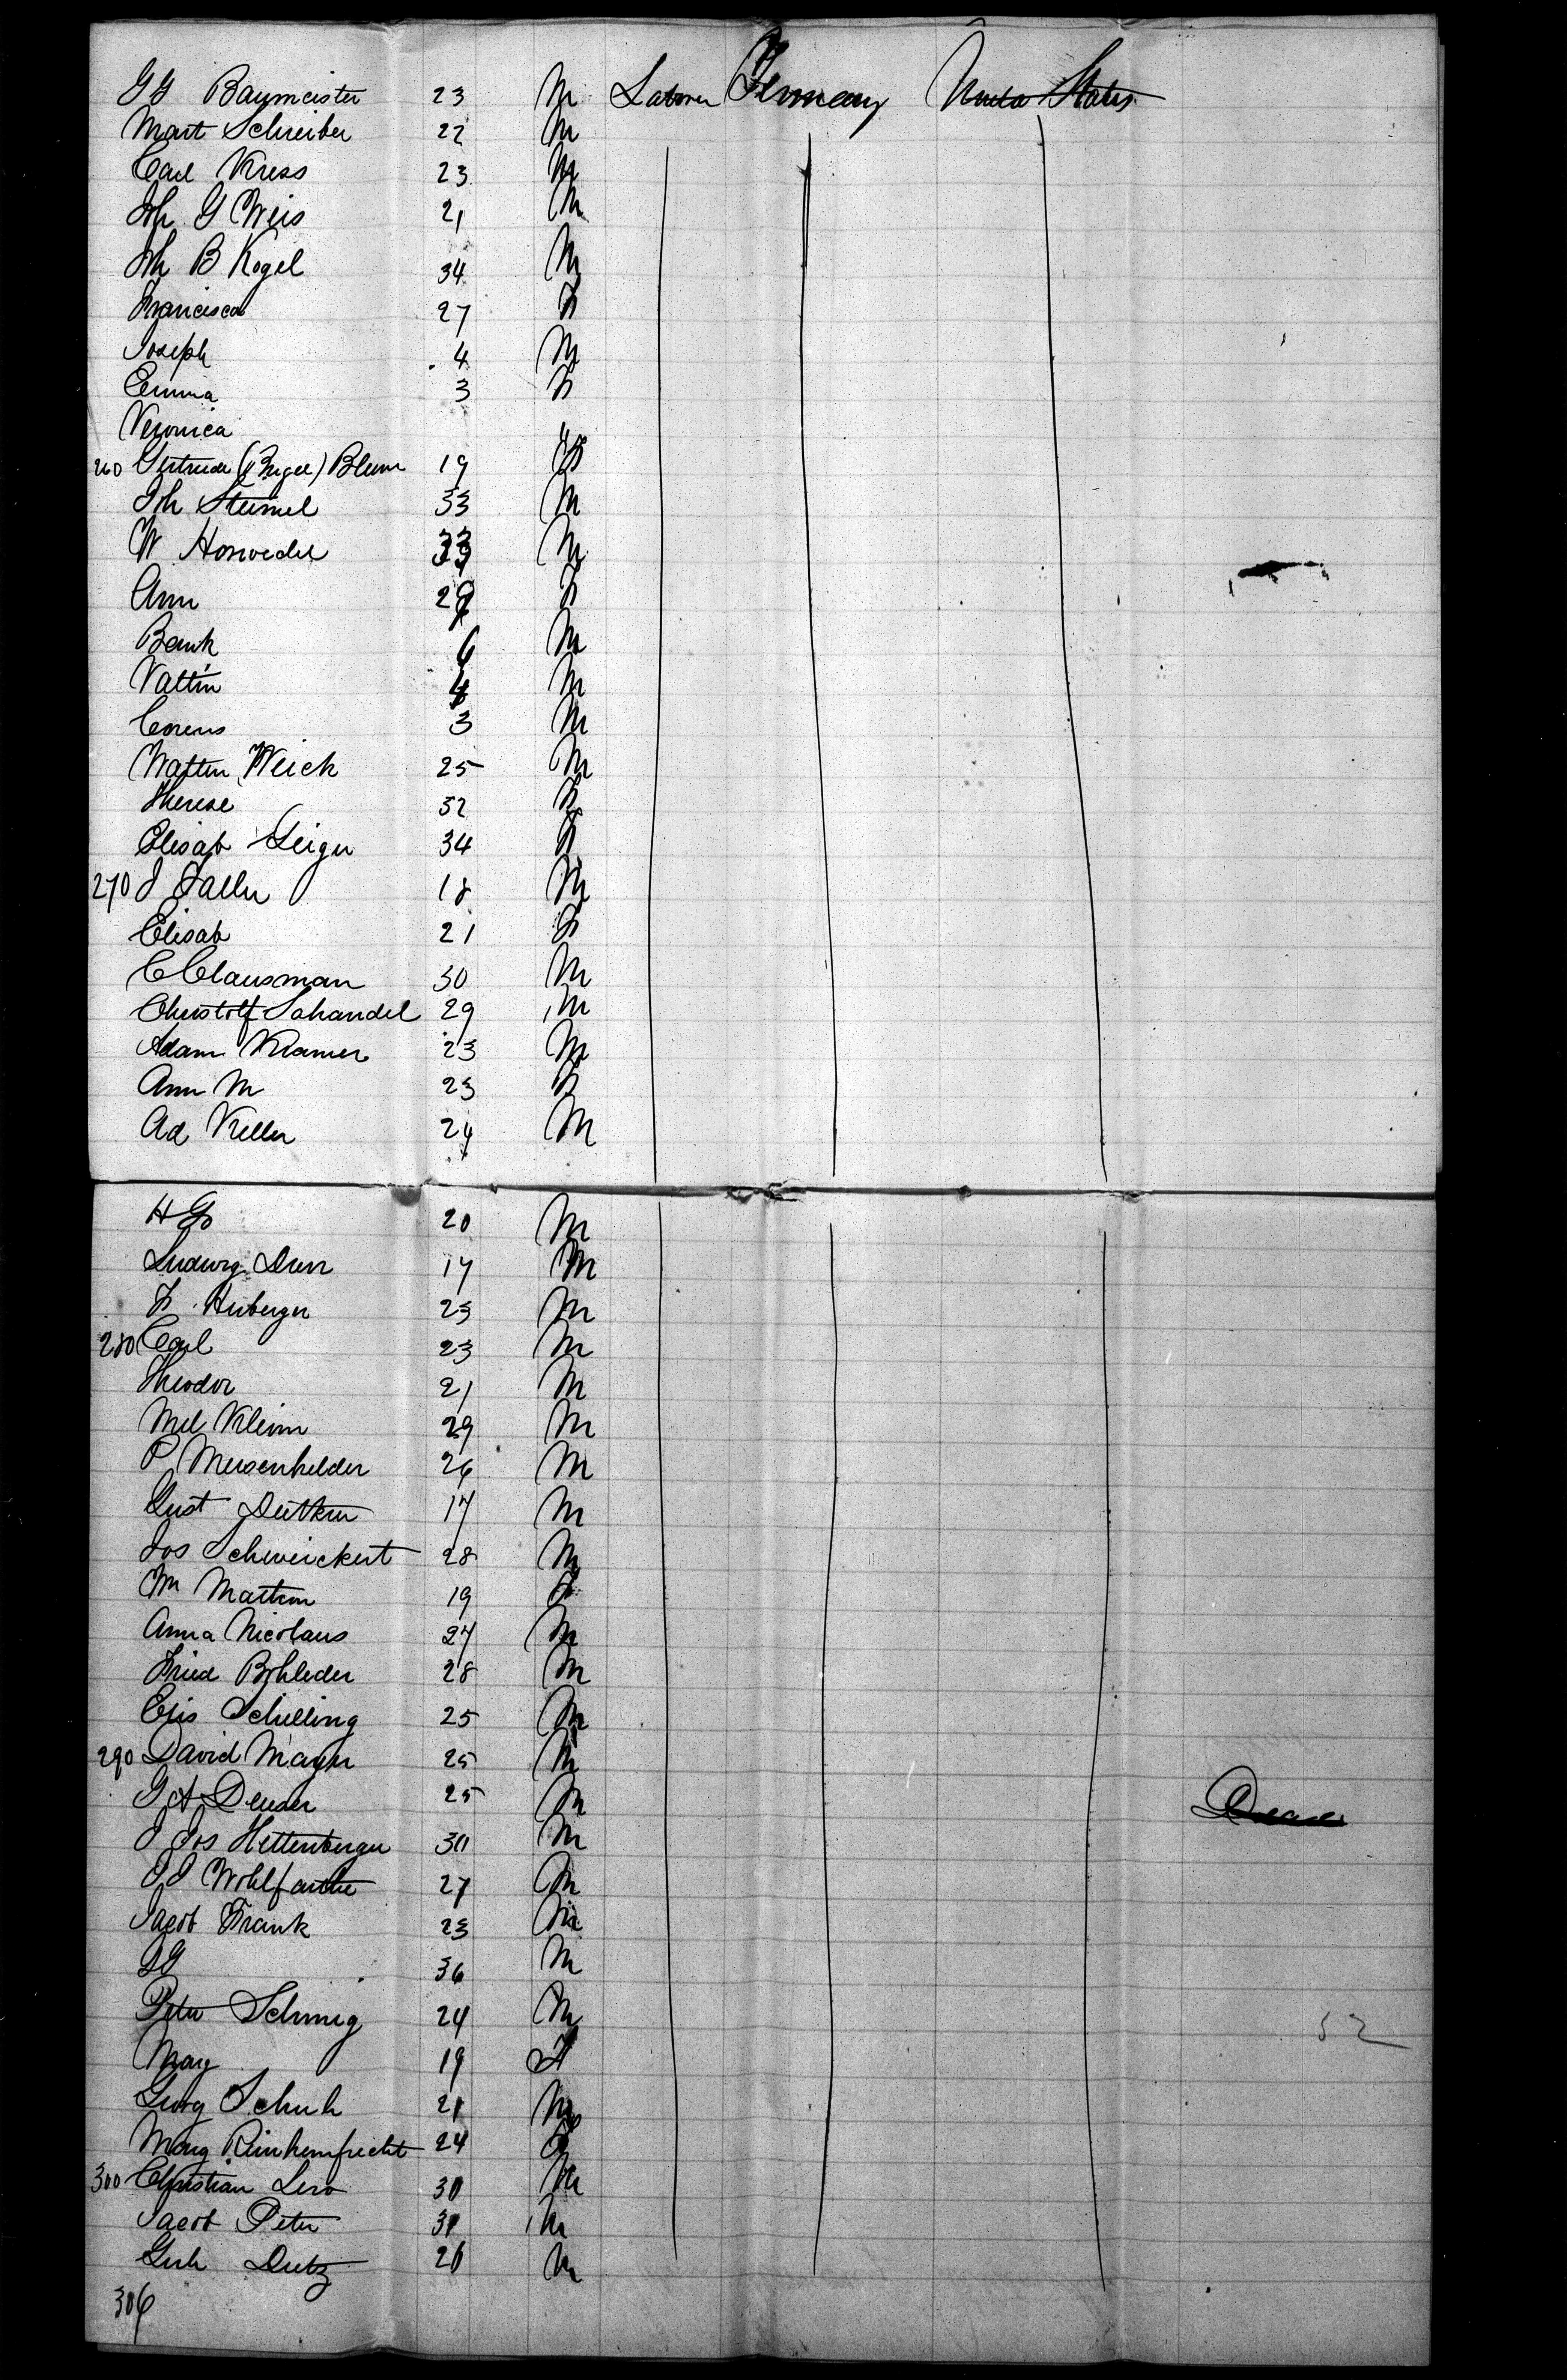 G G Baumeister 23 M Laborer Germany United States
Mart Schreiber 22 M
Carl Kress 23 M
Joh G Weis 21 M
Joh B Kogel 34 M
Francisca 27 F
Joseph 4 M
Emma 3 F
Veronica
260 Gertrude (Bugel) Blum 19 F
Joh Stumel 33 M
W 33 M
Ann F
6 M
Valtin 4 M
3 M
Weick 25 M
Therese 32 F
Elisab Geiger 34 F
270 J Faller 18 M
Elisab 21 F
C Clausman 30 M
Christolf Sahandel 29 M
Adam Kramer 23 M
Ann M 23 F
Ad Keller 24 M
H G 20 M
Ludwig Durr 17 M
F Herberger 23 M
280 Carl 23 M
Theodor 21 M
Mel Kleim 29 M
P Meisenhelder 26 M
Gust 17 M
Jos Schweickert 28 M
Wm Mattern 19 F
Anna Nicolaus 27 M
Fried Bohleder 28 M
Elis Schilling 25 M
290 David Mayer 25 M
G A Deuser 25 M
J Jos Hettenberger 30 M
J J Wohlfarthe 27 M
Jacob Frank 23 M
J G 36 M
Peter Schmig 24 M
52
Marg 19 F
Georg Schuh 21 M
Marg 24 F
300 Christian 30 M
Jacob Peter 31 M
Dietz 26 M
306